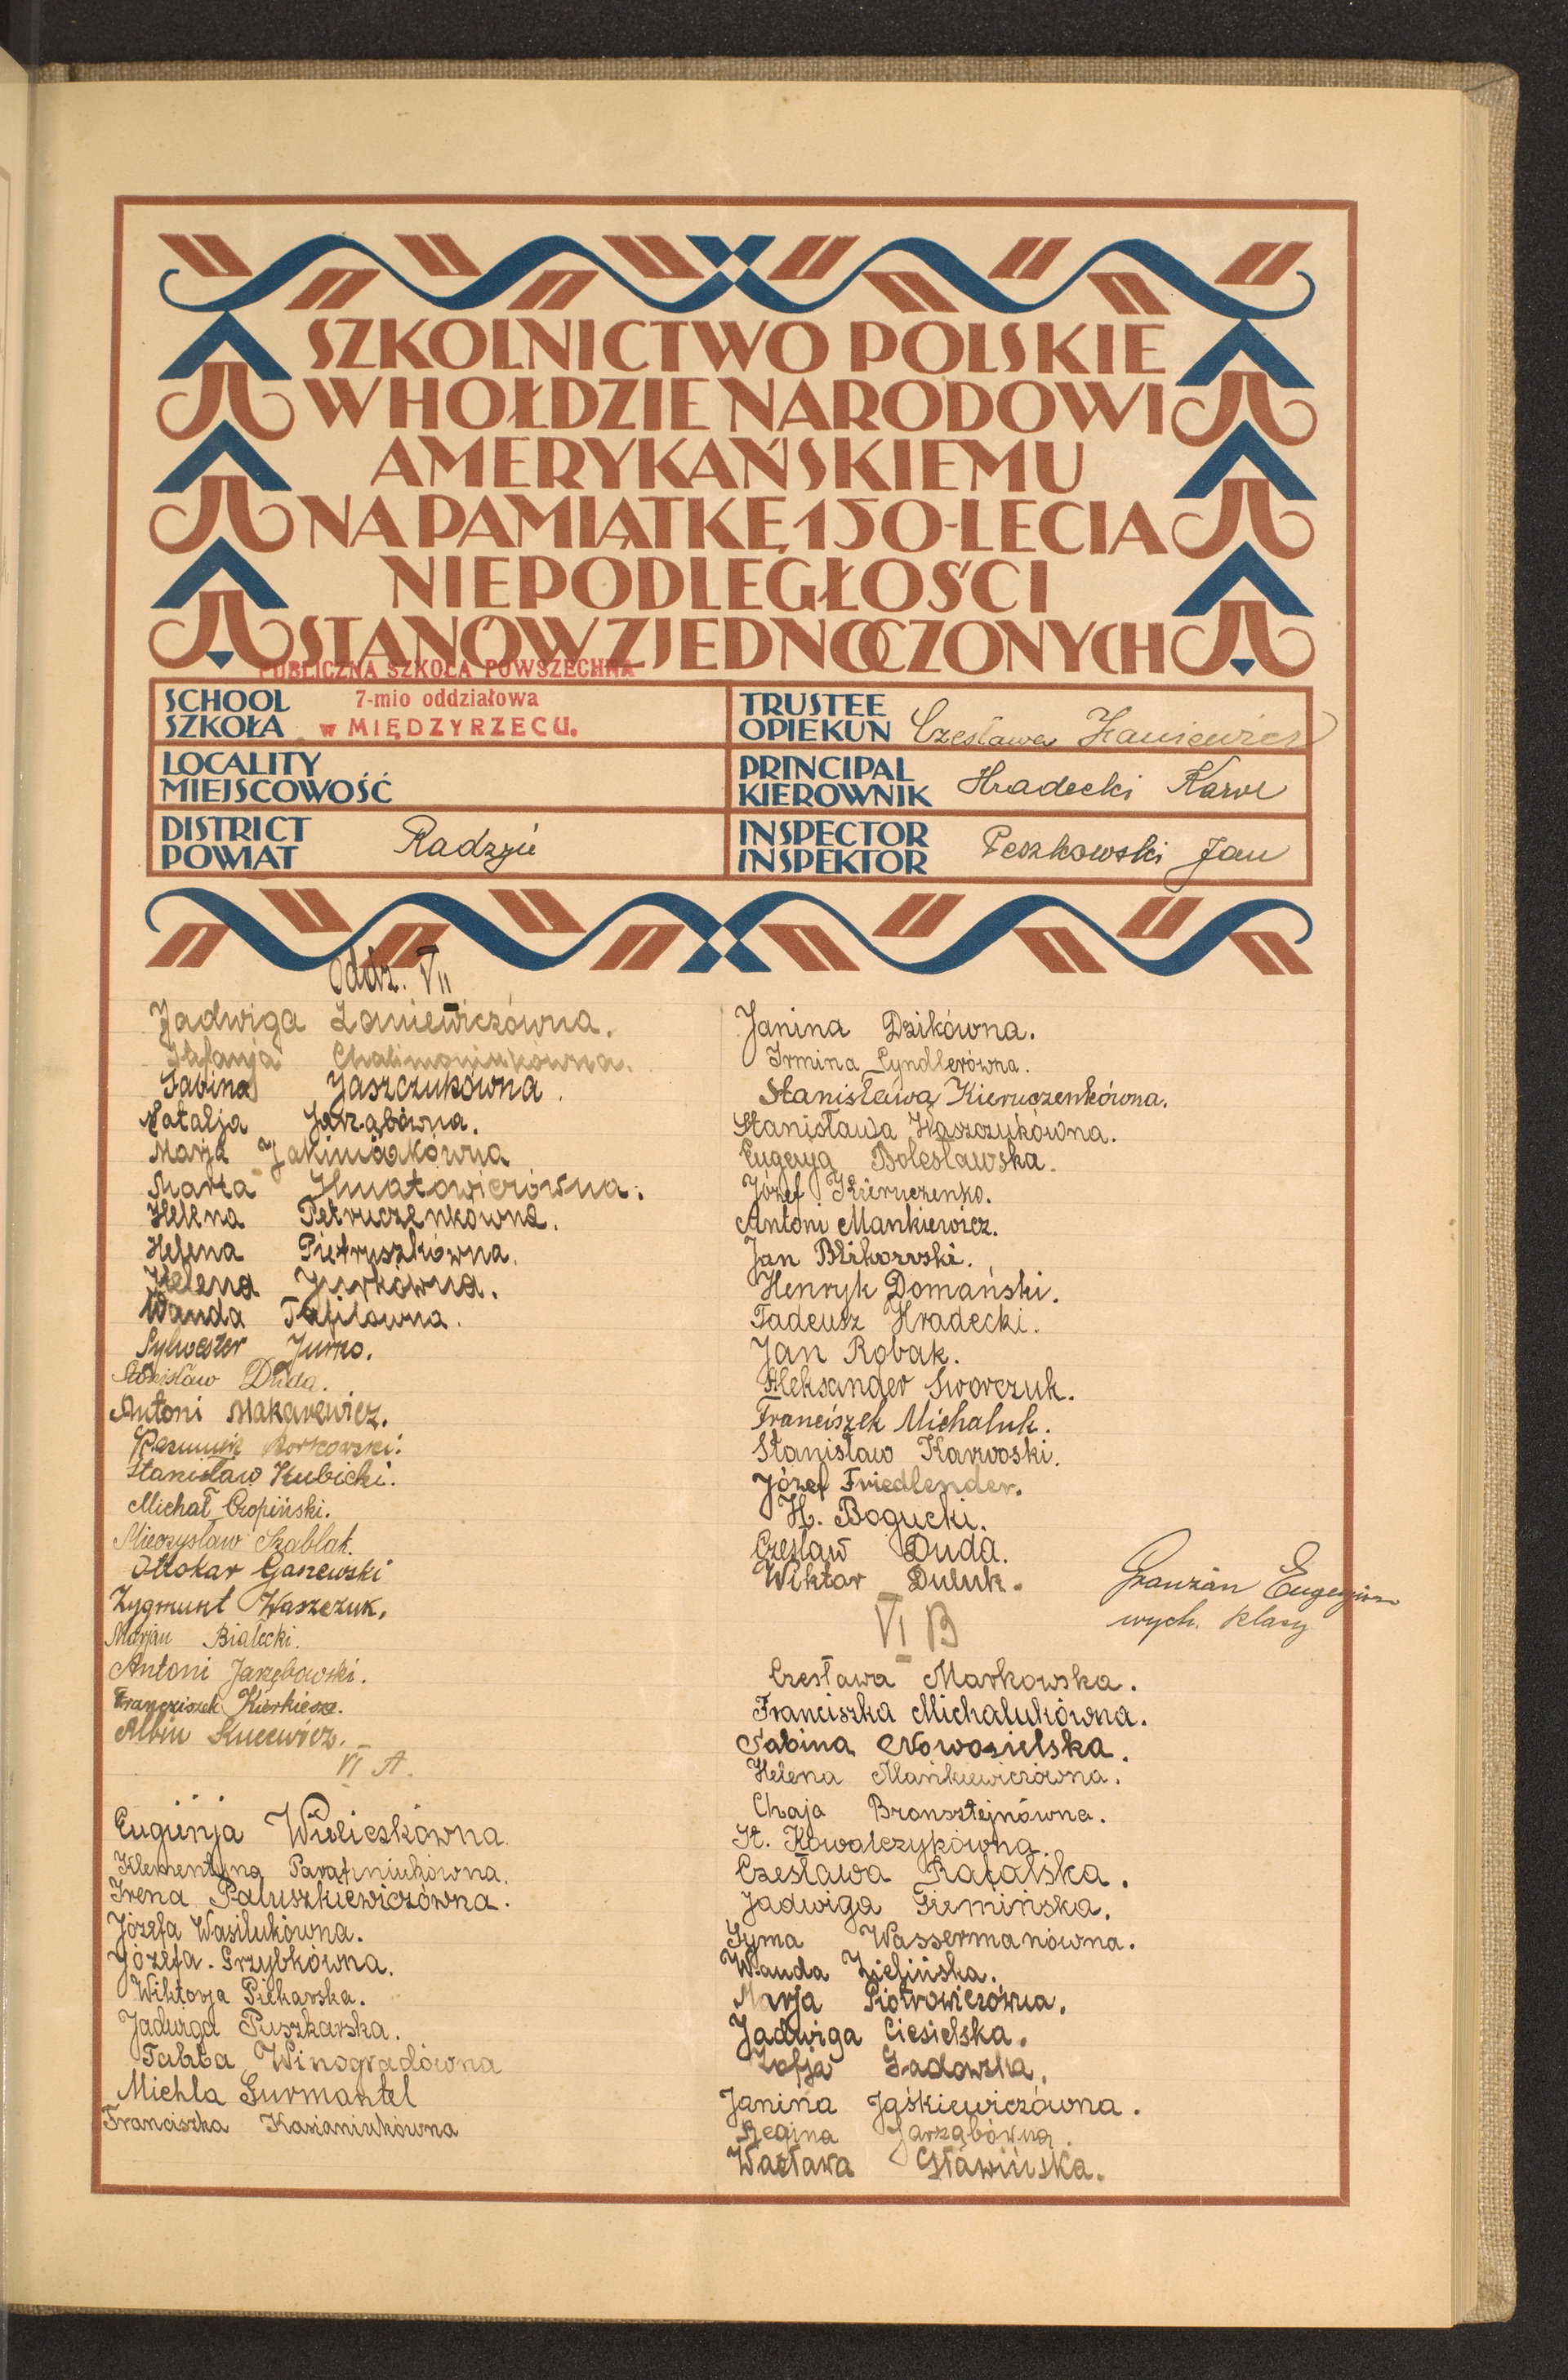 SZKOLNICTWO POLSKIE
W HOŁDZIE NARODOWI
AMERYKAŃSKIEMU
NA PAMIĄTKĘ 150-LECIA
NIEPODLEGŁOŚCI
STANÓW ZJEDNOCZONYCH
PUBLICZNA SZKOŁA POWSZECHNA
SCHOOL
SZKOŁA
7-mio oddziałowa
w MIĘDZYRZECU.
TRUSTEE
OPIEKUN
Czesława
LOCALITY
MIEJSCOWOŚĆ
PRINCIPAL
KIEROWNIK
Hradecki Karol
DISTRICT
POWIAT
Radzyń
INSPECTOR
INSPEKTOR
Peszkowski Jan
Oddz. VII
Jadwiga Zaniewiczówna.
Stefanja Chalimoniukówna.
Sabina Jaszczukówna.
Natalja Jarząbówna.
Marja
Marta
Helena Petruczenkówna.
Helena Pietruszkówna.
Helena Jurkówna.
Wanda Tafilówna.
Sylwester Jurko.
Stanisław Duda.
Antoni Makarewicz.
Kazimierz Borkowski.
Stanisław Kubicki.
Michał Czopiński.
Mieczysław Szablak.
Ottokar Ganewski
Zygmunt Waszczuk.
Marjan Białecki.
Antoni Jarzębowski.
Franciszek
Albin Kucewicz.
VI A.
Eugienja Wieliczkówna.
Klementyna Parafiniukówna.
Irena Paluszkiewiczówna.
Józefa Wasilukówna.
Józefa. Grzybkówna.
Wiktorja Piekarska.
Jadwiga Puszkarska.
Tabba Winogradówna
Michla Gurmantel
Franciszka Kasianiukówna
Janina Dzikówna.
Irmina Lyndlerówna.
Stanisława Kieruczenkówna.
Stanisława Waszczukówna.
Eugenja Bolesławska.
Józef Kieruczenko.
Antoni Mankiewicz.
Jan Blikowski.
Henryk Domański.
Tadeusz Hradecki.
Jan Robak.
Aleksander Sworczuk.
Franciszek Michaluk.
Stanisław Karwoski.
Józef Friedlender.
H. Bogucki.
Czesław Duda.
Wiktor Duluk.
Eugenjusz
wych. klasy
VI B
Czesława Markowska.
Franciszka Michalukówna.
Sabina Nowosielska.
Helena Mańkiewiczówna.
Chaja Bronsztejnówna.
St. Kowalczykówna.
Czesława Rafalska.
Jadwiga Giemińska.
Syma Wassermanówna.
Wanda Zielińska.
Marja Piotrowiczówna.
Jadwiga Ciesielska.
Zofja Sadowska.
Janina Jaśkiewiczówna.
Regina Jarząbówna.
Wacława Sławińska.